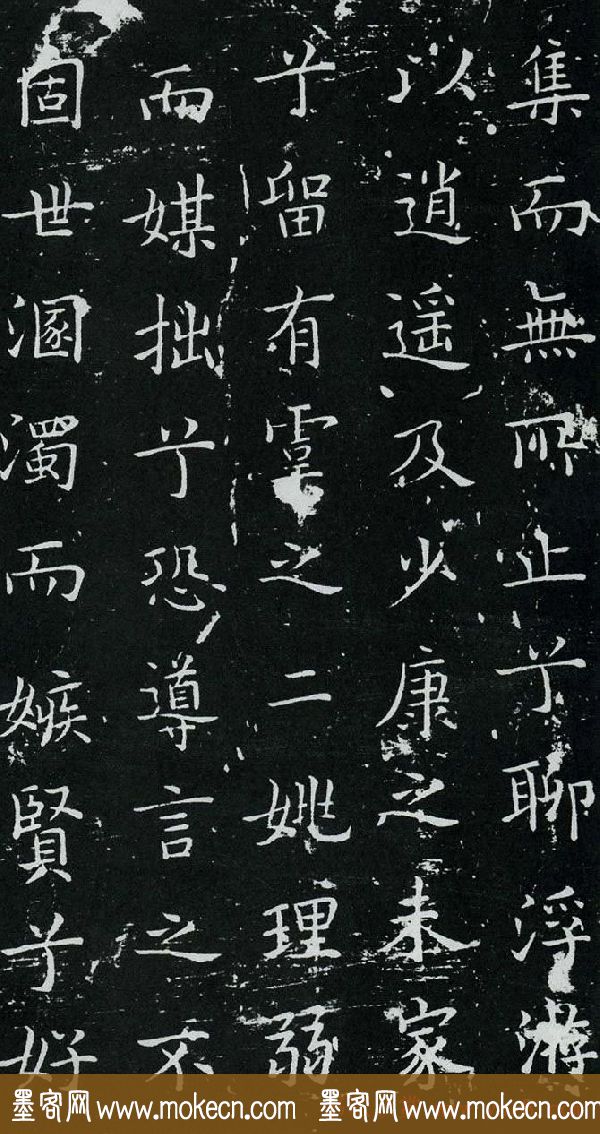 集而無所止兮聊浮游
以逍遥及少康之未家
兮留有虞之二姚理弱
而媒拙兮恐導言之不
固世溷濁而嫉賢兮好
墨客网 www.mokecn.com 墨客网 www.mokecn.com